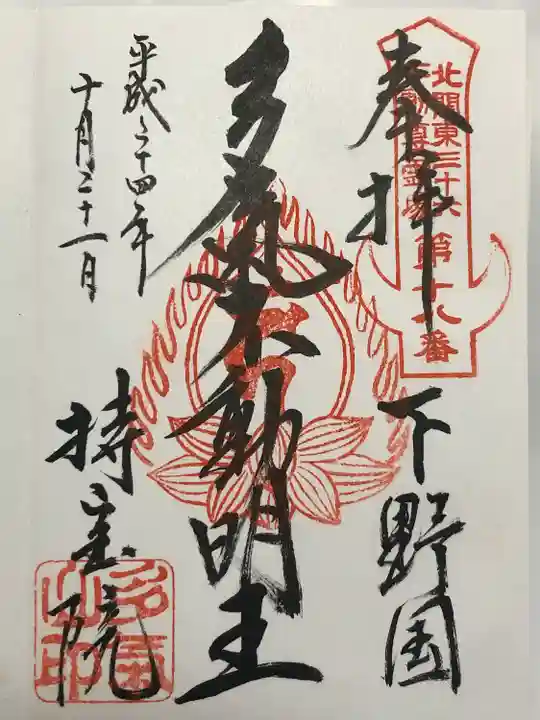 奉拝
北関東三十六
不動尊霊場
第十八番
下野国
多気不動明王
平成二十四年
十月二十一日
持宝院
多気山印